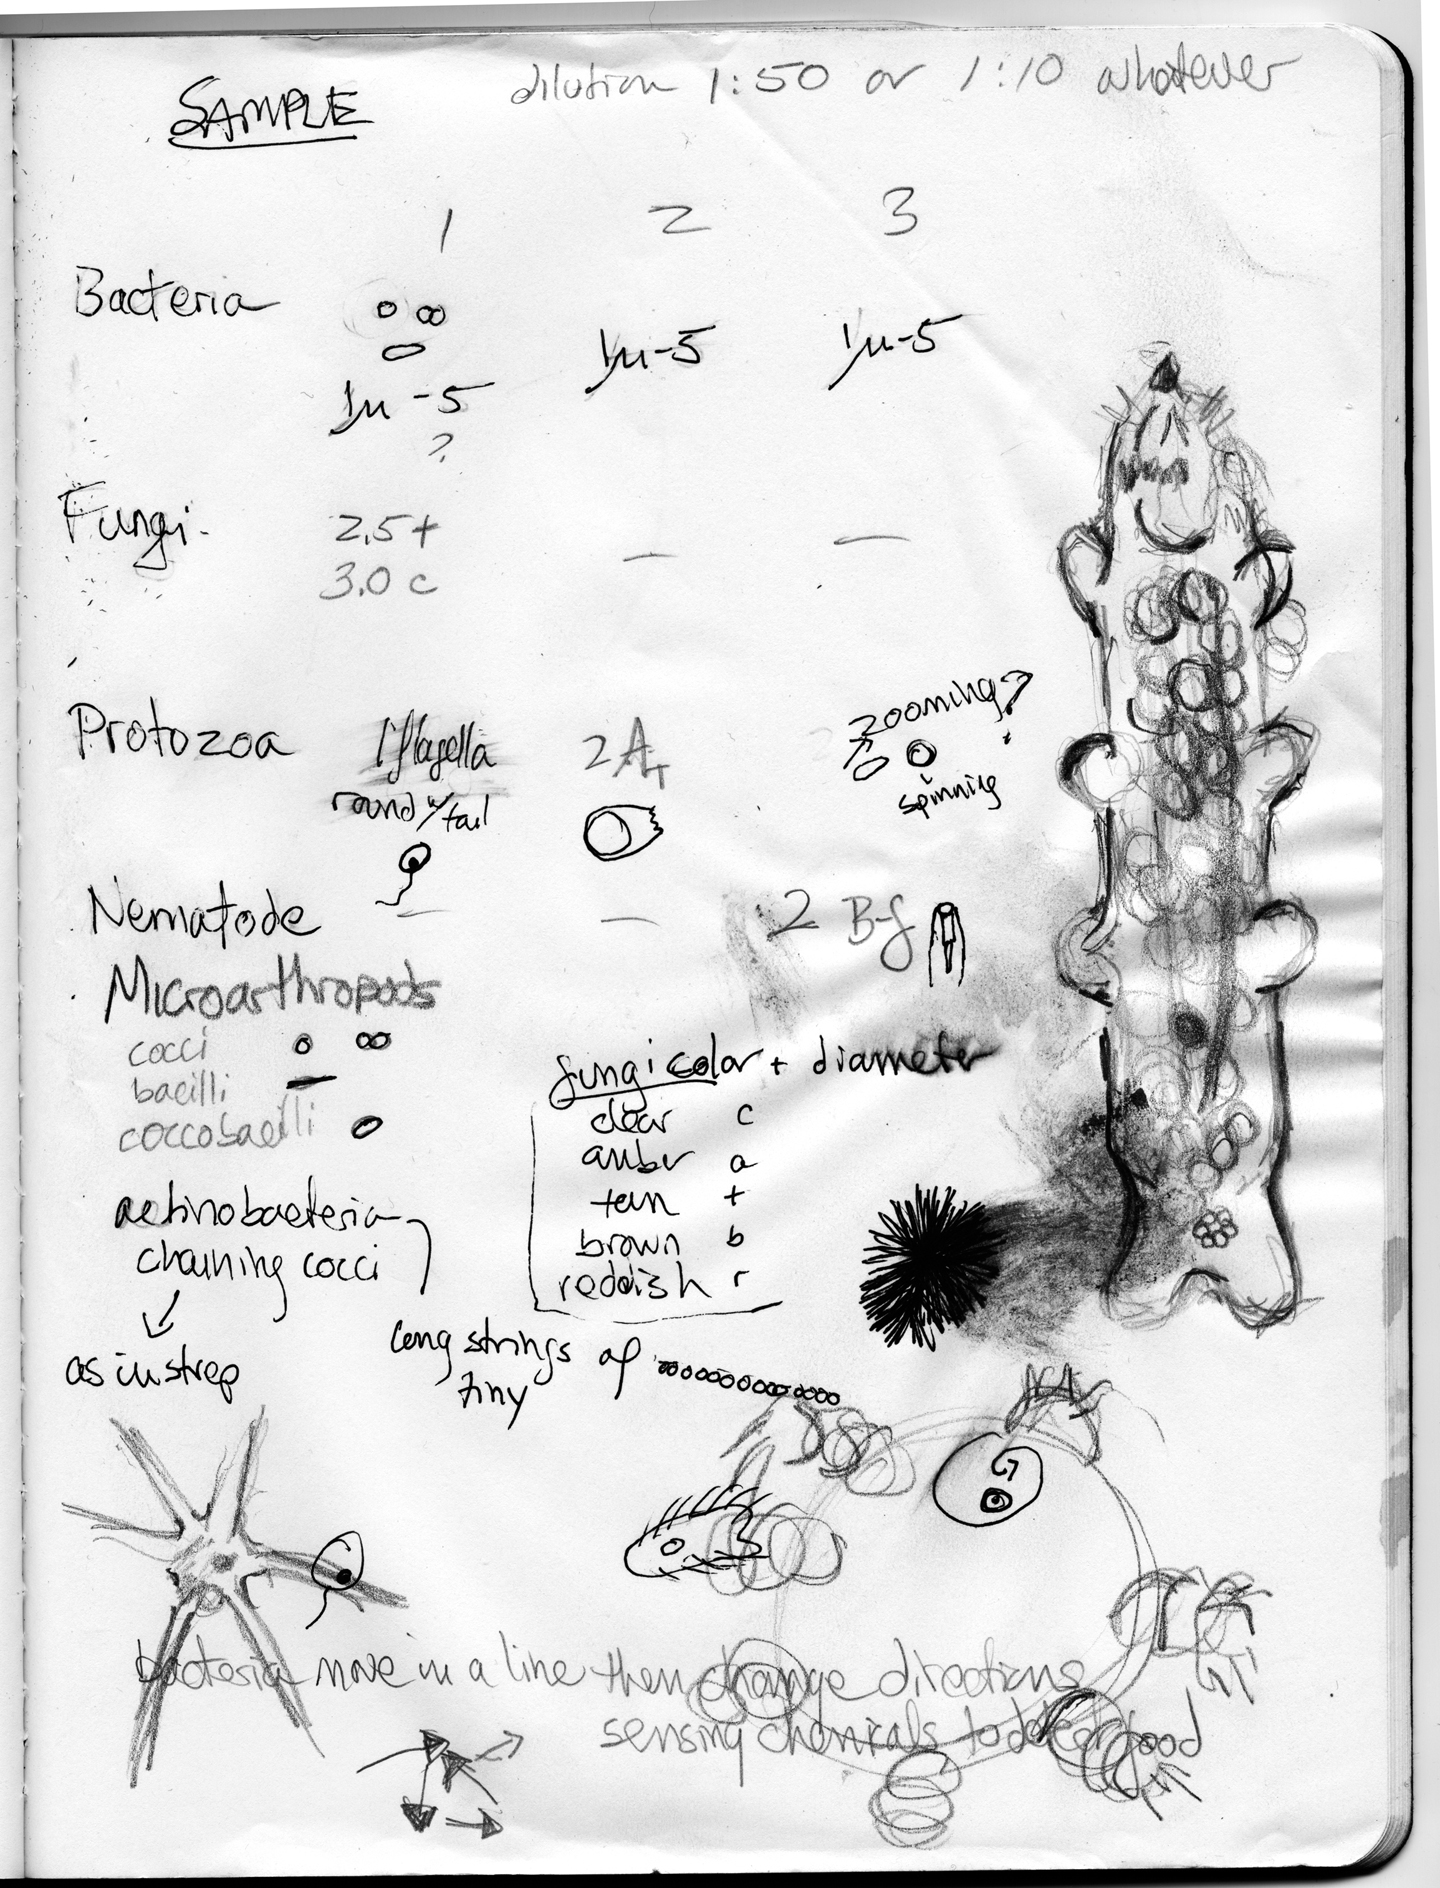 SAMPLE
dilution 1:50 or 1:10 whatever
1 2 3
Bacteria
1µ-5 1µ-5 1µ-5
?
Fungi. 2.5 t — —
3.0 c
Protozoa 1 flagella 2 A
round w/ tail
zooming?
spinning
Nematode — — 2 B-f
Microarthropods
cocci
bacilli
coccobacilli
actinobacteria
chaining cocci
as in strep
fungi color + diameter
clear c
amber a
tan t
brown b
reddish r
long strings of
tiny
bacteria move in a line then change directions
sensing chemicals to detect food